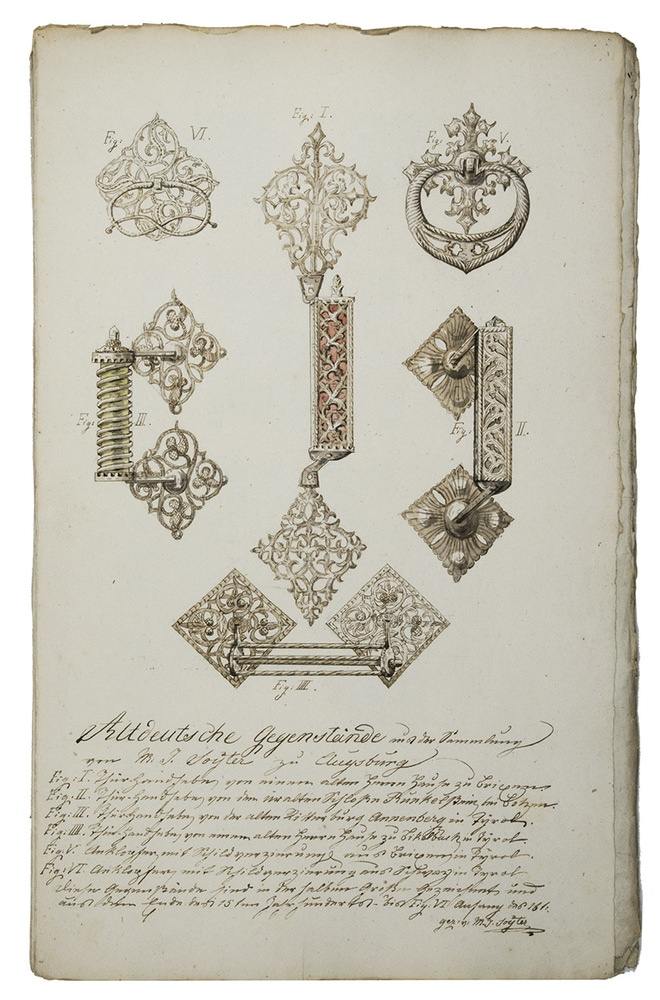 Fig: VI.
Fig: I.
Fig: V.
Fig: III.
Fig: II.
Fig: IIII.
Altdeutsche Gegenstände aus der Sammlung
von M. J. Soyter zu Augsburg
Fig: I. Thür-Handhebe, von einem alten Herrn Hause zu Brixen.
Fig: II. Thür-Handhebe, von den uralten Schloße Runkelstein, bei
Fig: III. Thür-Handhebe, von der alten Ritterburg Annenberg in Tÿrol.
Fig: IIII. Thür-Handhebe, von einem alten Herrn Hause zu in Tÿrol.
Fig: V. Anklopfer, mit Schildverzierung aus Brixen in Tÿrol.
Fig: VI. Anklopfer, mit Schildverzierung aus Schwaz in Tÿrol
diese Gegenstände sind in der halben Größe gezeichnet, und
aus dem Ende des 15ten Jahrhunderts - bis Fig. VI Anfang des 16t.
gez: v. M. J. Soyter